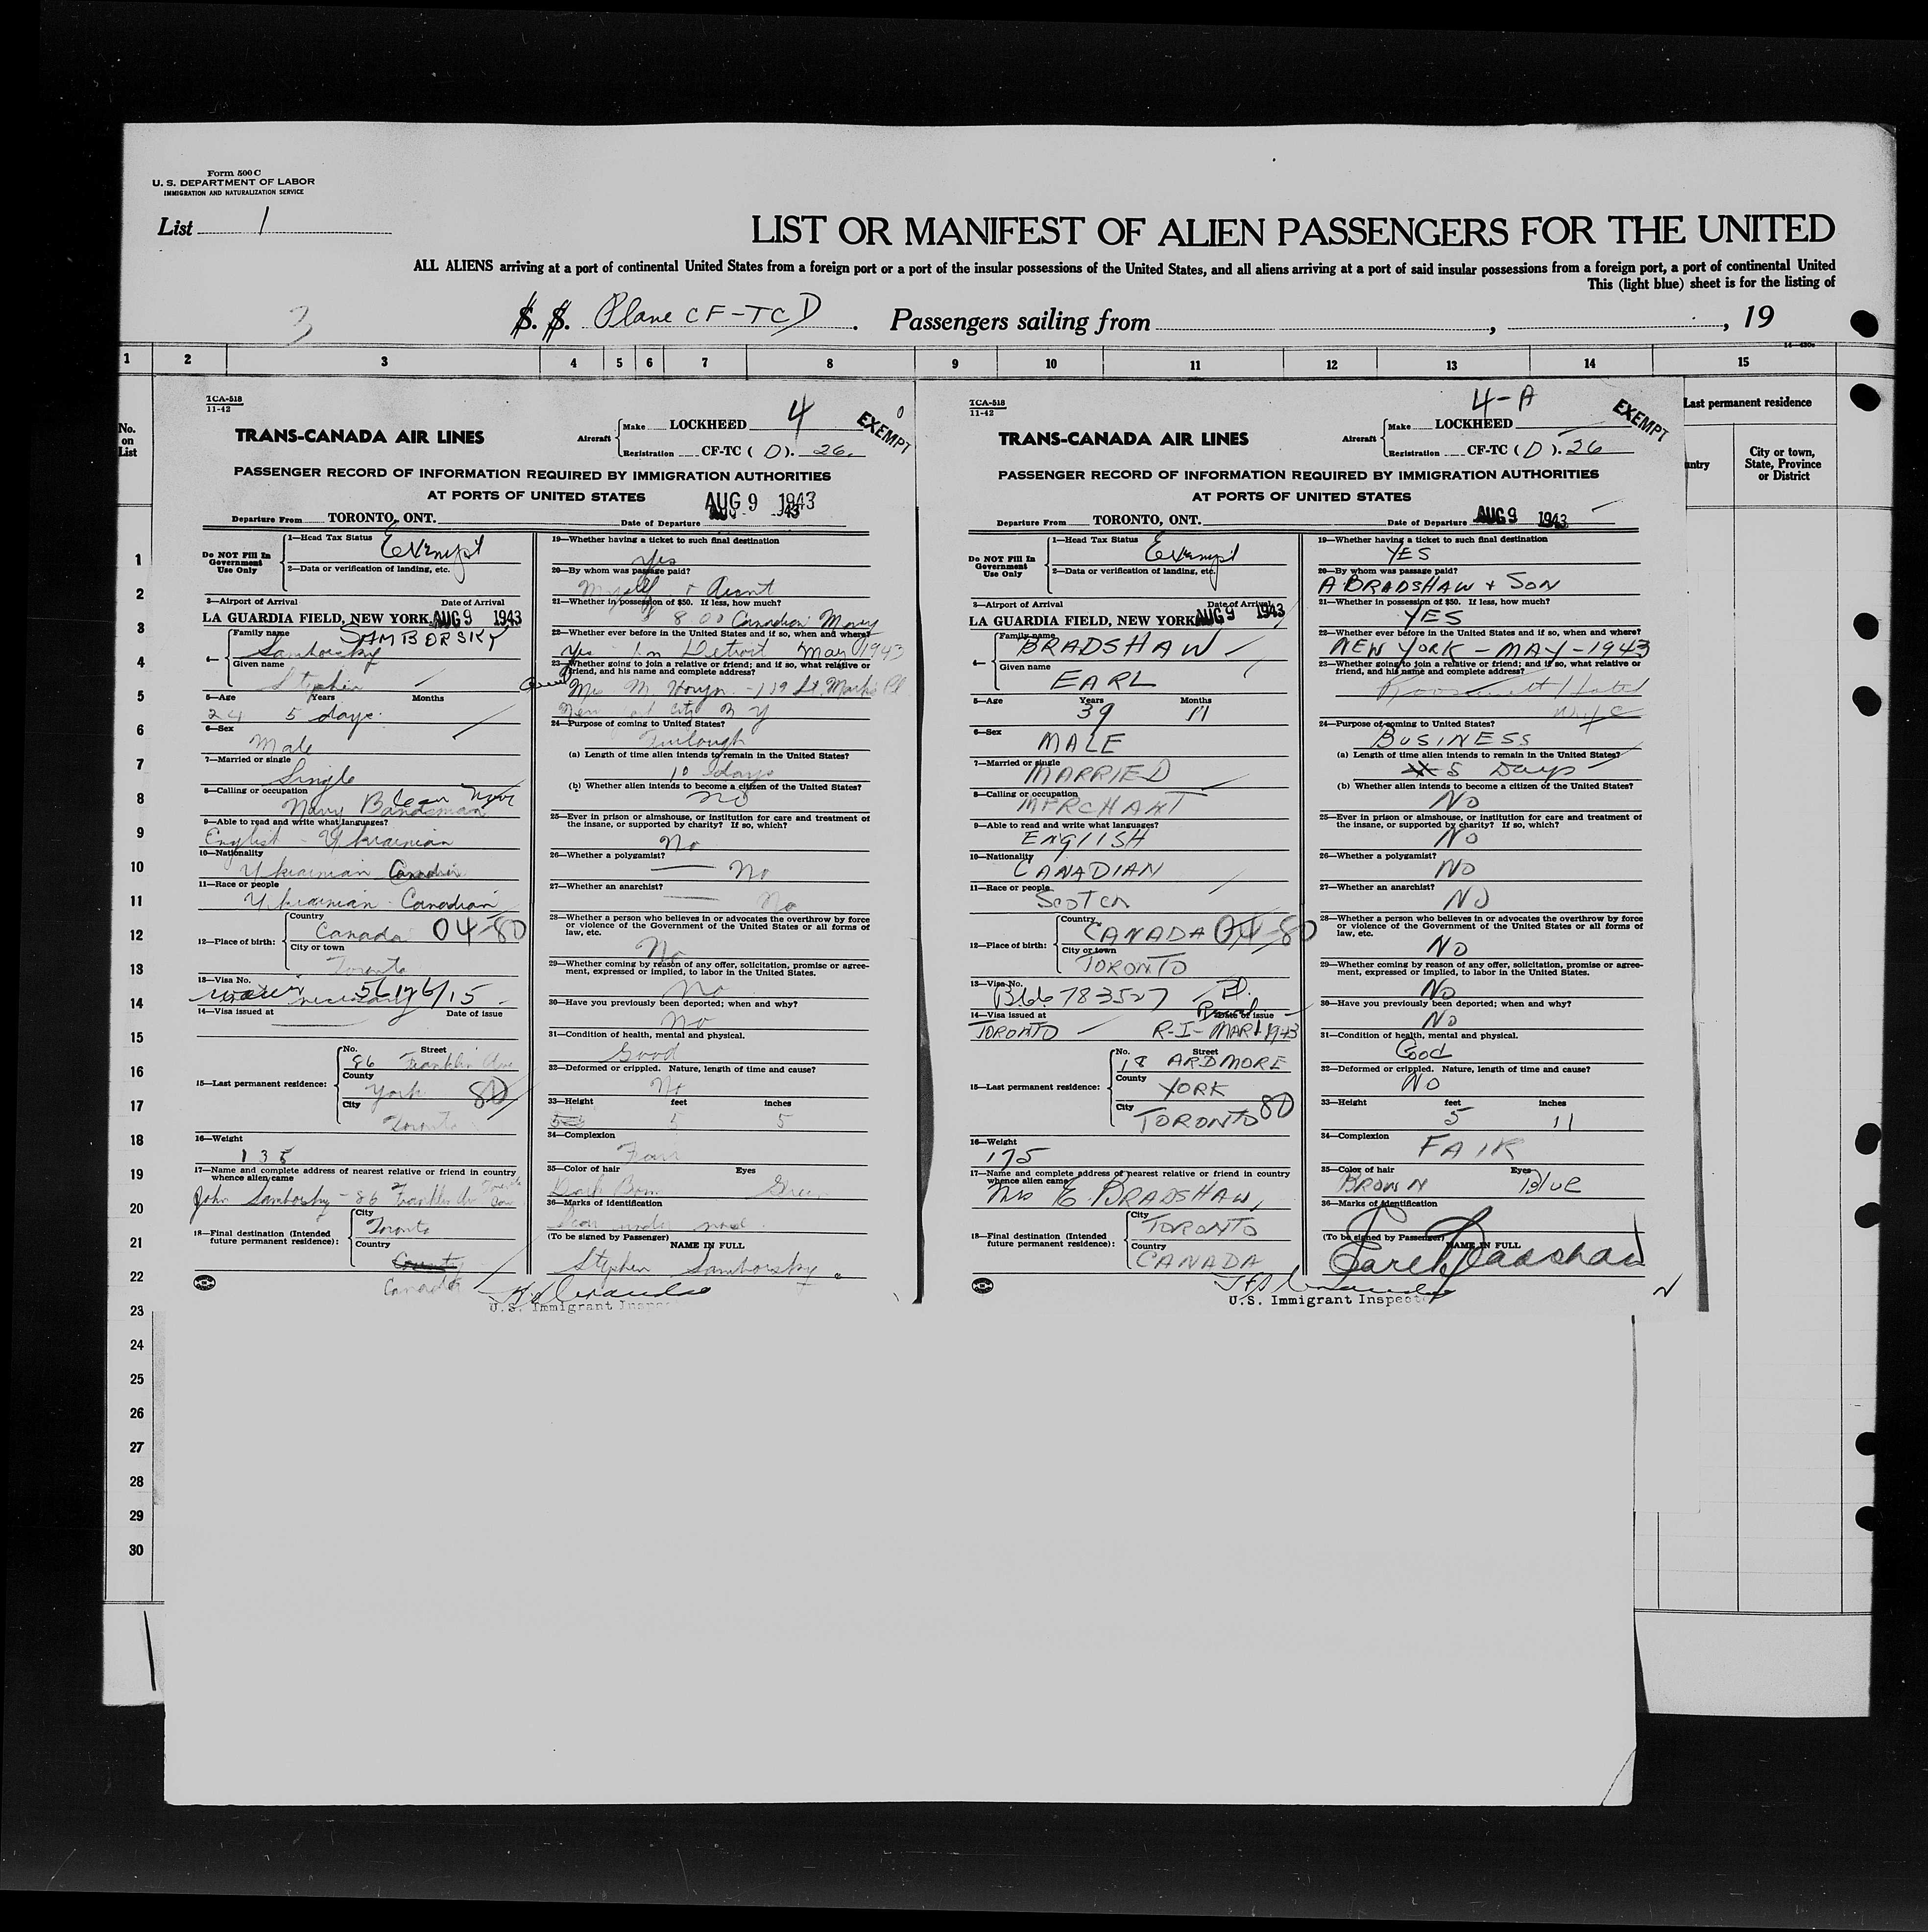 Form 500 C
U. S. DEPARTMENT OF LABOR
IMMIGRATION AND NATURALIZATION SERVICE
List 1
LIST OR MANIFEST OF ALIEN PASSENGERS FOR THE UNITED
ALL ALIENS arriving at a port of continental United States from a foreign port or a port of the insular possessions of the United States, and all aliens arriving at a port of said insular possessions from a foreign port, a port of continental United
This (light blue) sheet is for the listing of
3
S. S. Plane CF-TCD. Passengers sailing from , , 19
1 2 3 4 5 6 7 8 9 10 11 12 13 14 15
No. on List
Last permanent residence
untry
City or town, State, Province or District
1
2
3
4
5
6
7
8
9
10
11
12
13
14
15
16
17
18
19
20
21
22
23
24
25
26
27
28
29
30
TCA-518
11-42
4
EXEMPT
TRANS-CANADA AIR LINES
Aircraft
Make LOCKHEED
Registration CF-TC (D). 26.
PASSENGER RECORD OF INFORMATION REQUIRED BY IMMIGRATION AUTHORITIES
AT PORTS OF UNITED STATES
AUG 9 1943
Departure From TORONTO, ONT. Date of Departure
Do NOT Fill In Government Use Only
1—Head Tax Status Exempt
2—Data or verification of landing, etc.
3—Airport of Arrival Date of Arrival
LA GUARDIA FIELD, NEW YORK AUG 9 1943
4—
Family name SAMBORSKY
Samborsky
Given name
Stephen
5—Age Years Months
24 5 days.
6—Sex
Male
7—Married or single
Single
8—Calling or occupation
Navy Bandsman
9—Able to read and write what languages?
English - Ukrainian
10—Nationality
Ukrainian Canadian
11—Race or people
Ukrainian - Canadian
12—Place of birth:
Country
Canada 04-80
City or town
Toronto
13—Visa No.
necessary 56126/15
14—Visa issued at Date of issue
15—Last permanent residence:
No. Street
86 Franklin Ave
County
York 80
City
Toronto
16—Weight
135
17—Name and complete address of nearest relative or friend in country whence alien came
John Samborsky - 86 Franklin Av
18—Final destination (Intended future permanent residence):
City
Toronto
Country
Canada
19—Whether having a ticket to such final destination
Yes
20—By whom was passage paid?
Myself + Aunt
21—Whether in possession of $50. If less, how much?
8.00 Canadian Money
22—Whether ever before in the United States and if so, when and where?
Yes - In Detroit May 1943
23—Whether going to join a relative or friend; and if so, what relative or friend, and his name and complete address?
Mrs M. - 119 St. Marks Pl
New York City N Y
24—Purpose of coming to United States?
Furlough
(a) Length of time alien intends to remain in the United States?
10 days
(b) Whether alien intends to become a citizen of the United States?
no
25—Ever in prison or almshouse, or institution for care and treatment of the insane, or supported by charity? If so, which?
No
26—Whether a polygamist?
No
27—Whether an anarchist?
No
28—Whether a person who believes in or advocates the overthrow by force or violence of the Government of the United States or all forms of law, etc.
No
29—Whether coming by reason of any offer, solicitation, promise or agreement, expressed or implied, to labor in the United States.
No
30—Have you previously been deported; when and why?
No
31—Condition of health, mental and physical.
Good
32—Deformed or crippled. Nature, length of time and cause?
No
33—Height feet inches
5 5
34—Complexion
Fair
35—Color of hair Eyes
Dark Brown Green
36—Marks of identification
Scar under nose.
(To be signed by Passenger) NAME IN FULL
Stephen Samborsky
U.S. Immigrant Inspec
TCA-518
11-42
4-A
EXEMPT
TRANS-CANADA AIR LINES
Aircraft
Make LOCKHEED
Registration CF-TC (D). 26
PASSENGER RECORD OF INFORMATION REQUIRED BY IMMIGRATION AUTHORITIES
AT PORTS OF UNITED STATES
Departure From TORONTO, ONT. Date of Departure AUG 9 1943
Do NOT Fill In Government Use Only
1—Head Tax Status Exempt
2—Data or verification of landing, etc.
3—Airport of Arrival Date of Arrival
LA GUARDIA FIELD, NEW YORK AUG 9 1943
4—
Family name
BRADSHAW
Given name
EARL
5—Age Years Months
39 11
6—Sex
MALE
7—Married or single
MARRIED
8—Calling or occupation
MERCHANT
9—Able to read and write what languages?
ENGLISH
10—Nationality
CANADIAN
11—Race or people
SCOTCH
12—Place of birth:
Country
CANADA 04-80
City or town
TORONTO
13—Visa No.
783527
14—Visa issued at Date of issue
TORONTO R-I- MAR 1943
15—Last permanent residence:
No. Street
18 ARDMORE
County
YORK
City
TORONTO 80
16—Weight
175
17—Name and complete address of nearest relative or friend in country whence alien came
Mrs E. BRADSHAW,
18—Final destination (Intended future permanent residence):
City
TORONTO
Country
CANADA
19—Whether having a ticket to such final destination
YES
20—By whom was passage paid?
A BRADSHAW + SON
21—Whether in possession of $50. If less, how much?
YES
22—Whether ever before in the United States and if so, when and where?
NEW YORK - MAY - 1943
23—Whether going to join a relative or friend; and if so, what relative or friend, and his name and complete address?
Roosevelt Hotel
24—Purpose of coming to United States?
BUSINESS
(a) Length of time alien intends to remain in the United States?
5 Days
(b) Whether alien intends to become a citizen of the United States?
No
25—Ever in prison or almshouse, or institution for care and treatment of the insane, or supported by charity? If so, which?
No
26—Whether a polygamist?
NO
27—Whether an anarchist?
NO
28—Whether a person who believes in or advocates the overthrow by force or violence of the Government of the United States or all forms of law, etc.
NO
29—Whether coming by reason of any offer, solicitation, promise or agreement, expressed or implied, to labor in the United States.
No
30—Have you previously been deported; when and why?
No
31—Condition of health, mental and physical.
Good
32—Deformed or crippled. Nature, length of time and cause?
NO
33—Height feet inches
5 11
34—Complexion
FAIR
35—Color of hair Eyes
BROWN Blue
36—Marks of identification
(To be signed by Passenger) NAME IN FULL
Earl Bradshaw
U.S. Immigrant Inspector